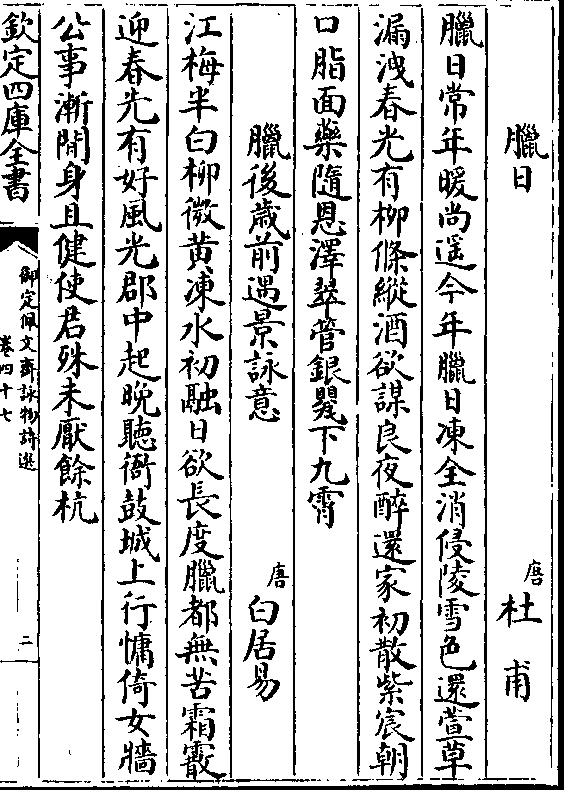 臘日　唐杜甫
臘日常年暖尚遥今年臘日凍全消侵陵雪色還萱草
漏洩春光有柳條縱酒欲謀良夜醉還家初散紫宸朝
口脂面藥隨恩澤翠管銀罌下九霄
臘後歲前遇景詠意　唐白居易
江梅半白柳微黃凍水初融日欲長度臘都無苦霜霰
迎春先有好風光郡中起晚聽衙鼓城上行慵倚女牆
公事漸閒身且健使君殊未厭餘杭
欽定四庫全書
御定佩文齋詠物詩選
卷四十七
二